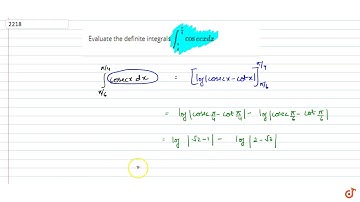 2218
Evaluate the definite integrals ∫ cosecxdx
∫_{π/6}^{π/4} cosecx dx = [log|cosecx-cotx|]_{π/6}^{π/4}
= log|cosec π/4 - cot π/4| - log|cosec π/6 - cot π/6|
= log |√2-1| - log |2-√3|